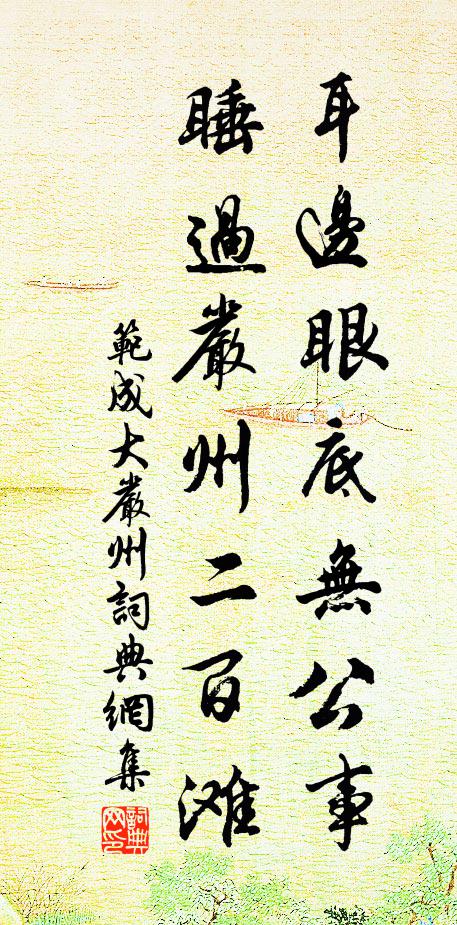 耳邊眼底無公事
睡過嚴州二百滩
範成大嚴州詞典網集
詞典
网印